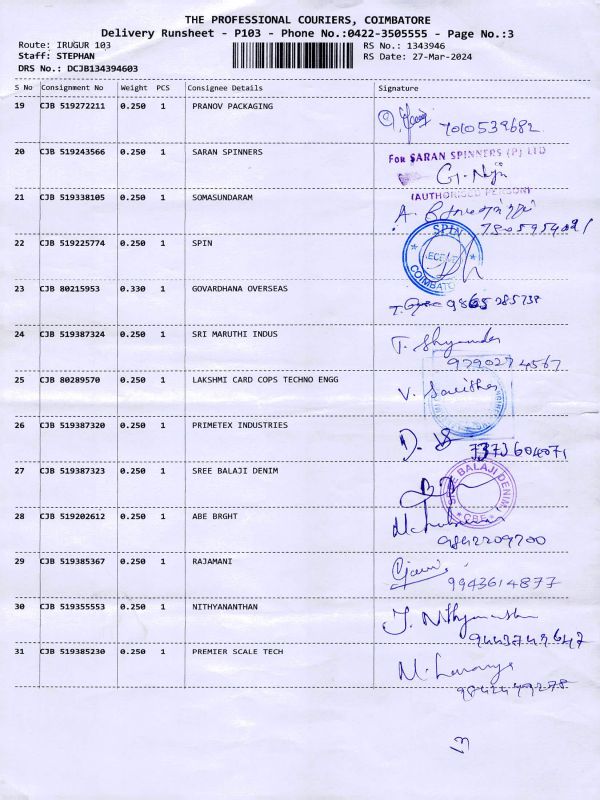 THE PROFESSIONAL COURIERS, COIMBATORE
Delivery Runsheet - P103 - Phone No.:0422-3505555 - Page No.:3
Route: IRUGUR 103 RS No.: 1343946
Staff: STEPHAN RS Date: 27-Mar-2024
DRS No.: DCJB134394603
S No Consignment No Weight PCS Consignee Details Signature
19 CJB 519272211 0.250 1 PRANOV PACKAGING
7010539682
20 CJB 519243566 0.250 1 SARAN SPINNERS FOR SARAN SPINNERS (P) LTD
(AUTHORISED PERSON)
21 CJB 519338105 0.250 1 SOMASUNDARAM
22 CJB 519225774 0.250 1 SPIN SPIN
COIMBATO
23 CJB 80215953 0.330 1 GOVARDHANA OVERSEAS
9865285738
24 CJB 519387324 0.250 1 SRI MARUTHI INDUS
9790274567
25 CJB 80289570 0.250 1 LAKSHMI CARD COPS TECHNO ENGG
V. Savitha
26 CJB 519387320 0.250 1 PRIMETEX INDUSTRIES
7373604071
27 CJB 519387323 0.250 1 SREE BALAJI DENIM SREE BALAJI DENIM
CBE
28 CJB 519202612 0.250 1 ABE BRGHT
9842209700
29 CJB 519385367 0.250 1 RAJAMANI
9943614877
30 CJB 519355553 0.250 1 NITHYANANTHAN
9443749647
31 CJB 519385230 0.250 1 PREMIER SCALE TECH
9842449278